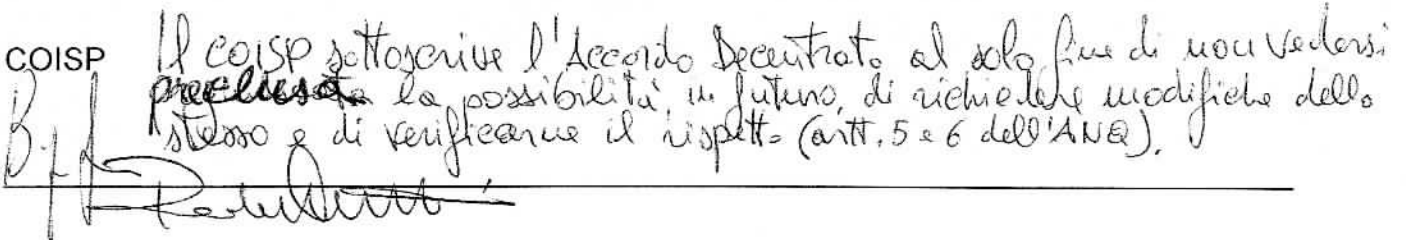 COISP Il COISP sottoscrive l'Accordo Decentrato al solo fine di non vedersi
preclusa la possibilità, in futuro, di richiedere modifiche dello
stesso e di verificarne il rispetto (artt. 5 e 6 dell'ANQ).